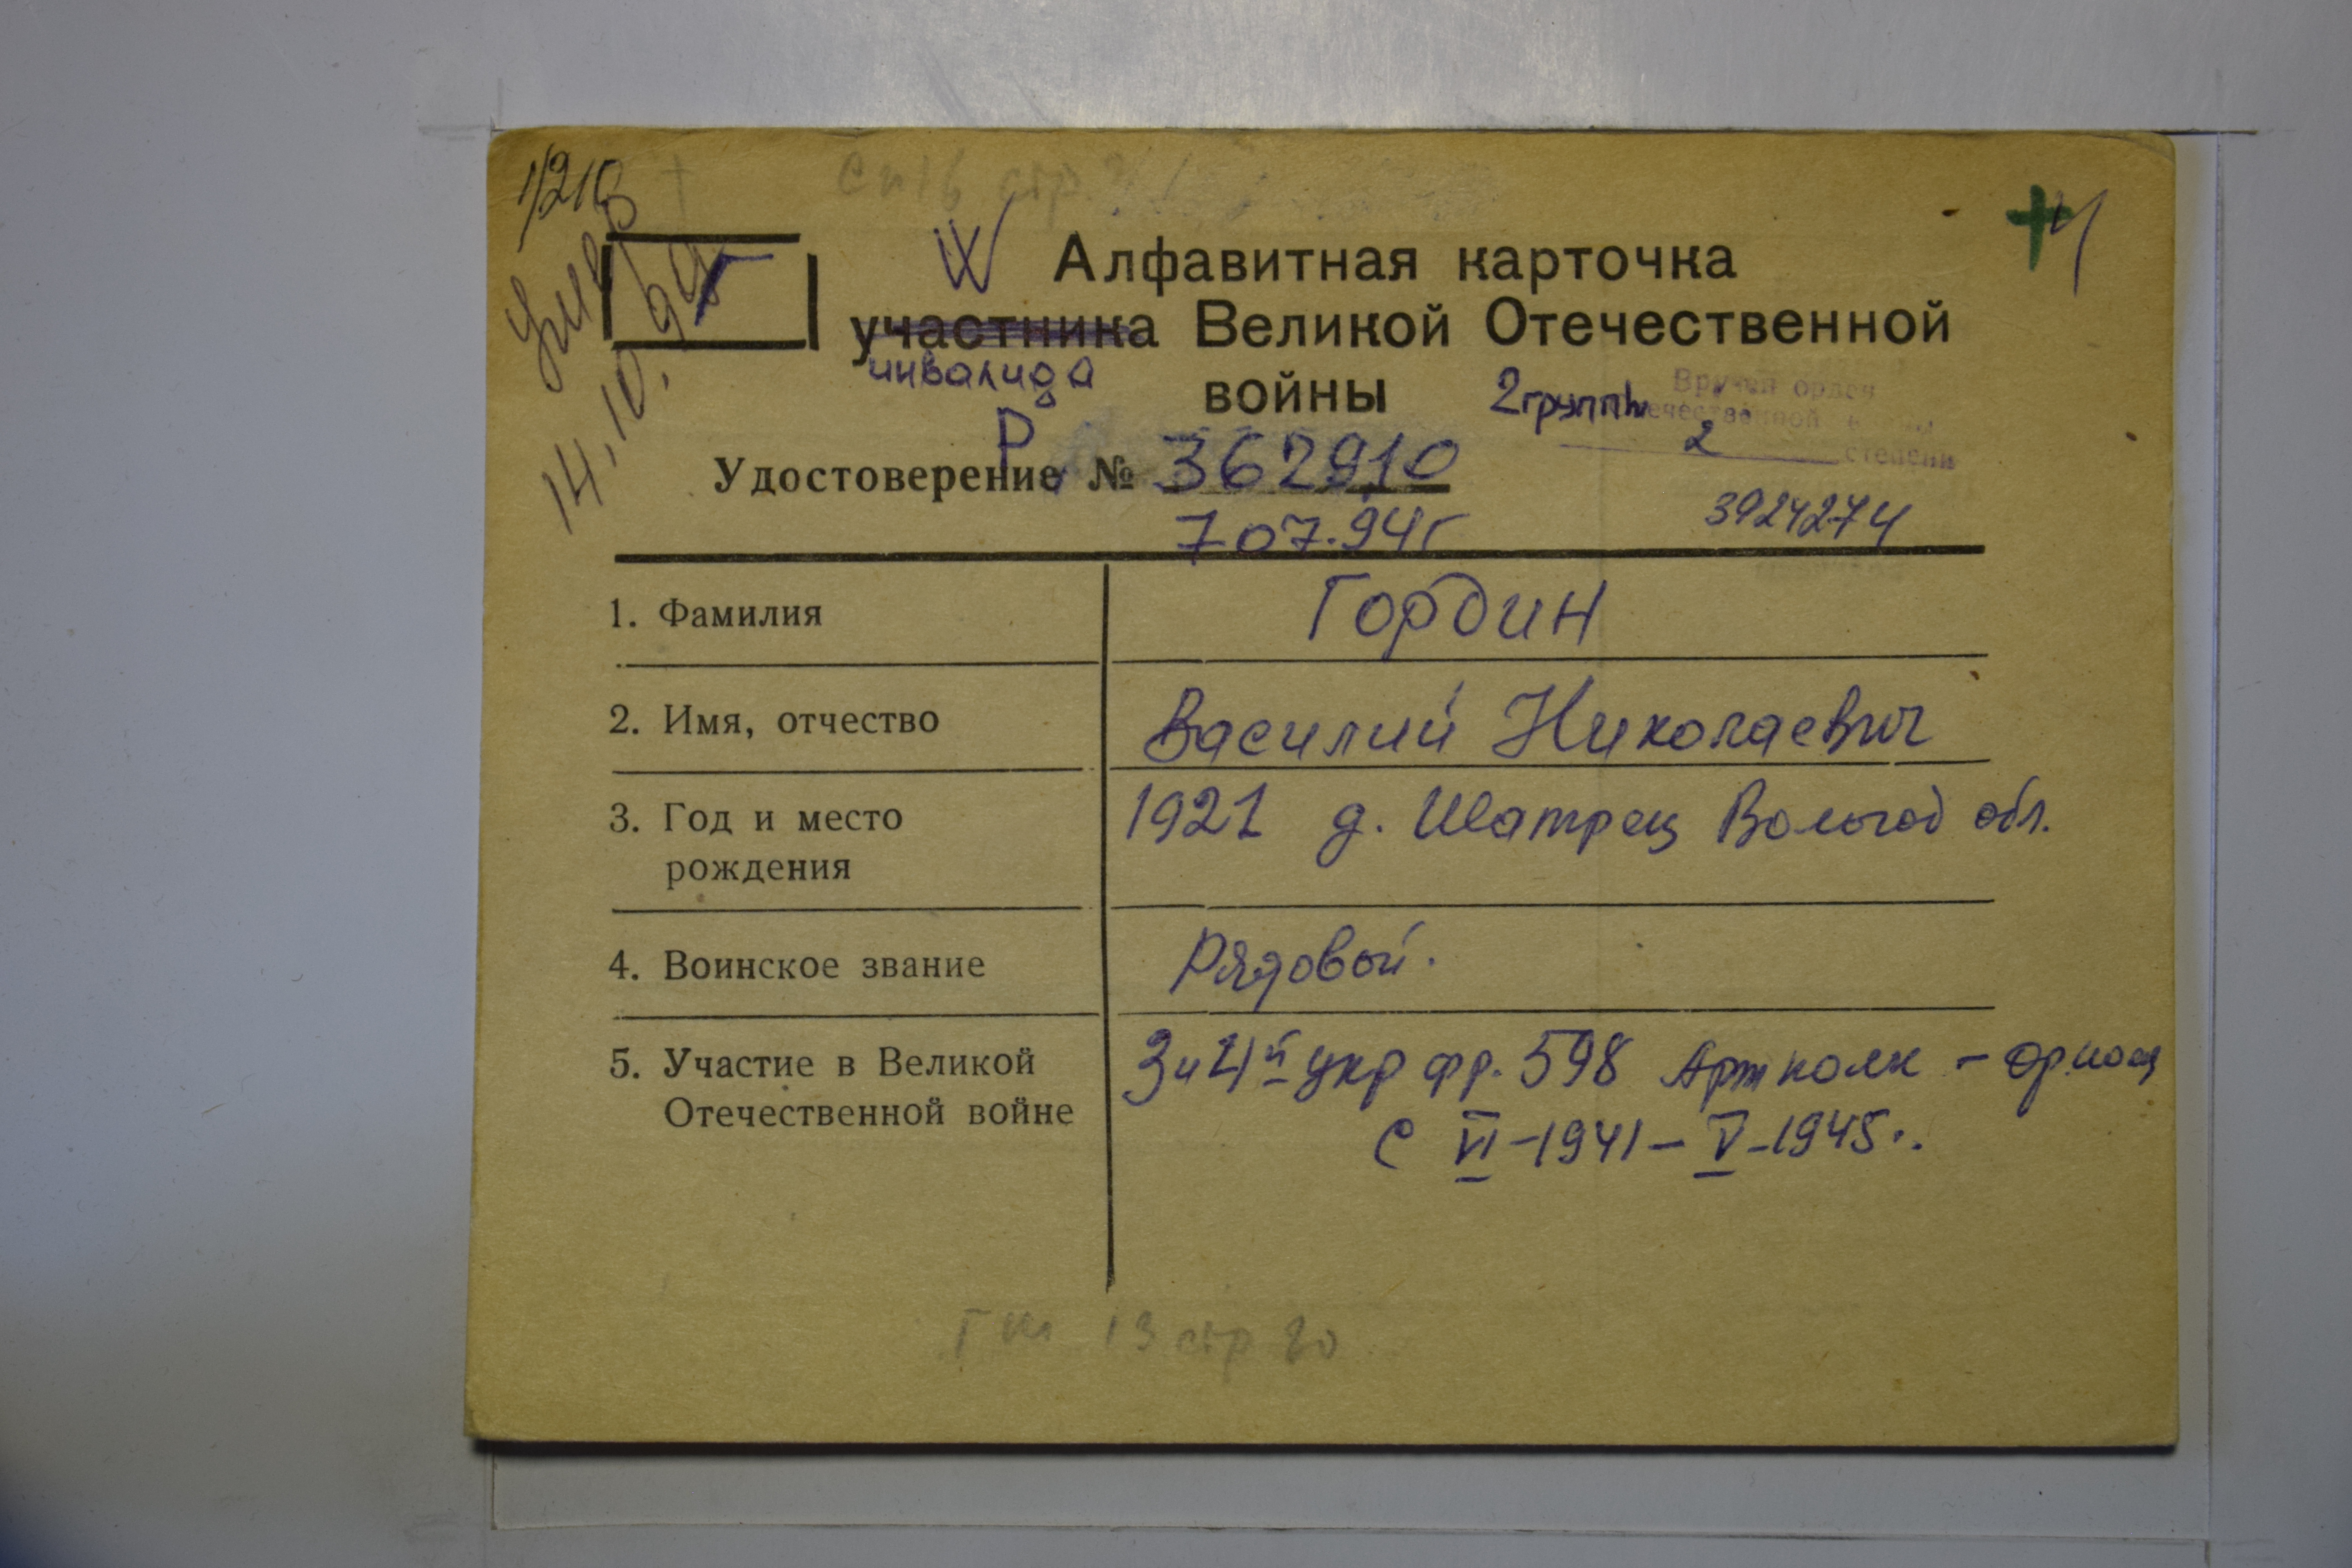 1/210
Умер
14.10.94
Г
Алфавитная карточка
участника Великой Отечественной
инвалида
войны
2 группы
Вручен орден
Отечественной войны
2 степени
Р
Удостоверение № 362910
7 07.94г
3924274
1. Фамилия
Гордин
2. Имя, отчество
Василий Николаевич
3. Год и место
рождения
1921 д. Шатрец Вологод обл.
4. Воинское звание
Рядовой.
5. Участие в Великой
Отечественной войне
3 и 4й укр фр. 598 Арт полк -
с VI-1941-V-1945.
13 стр 20